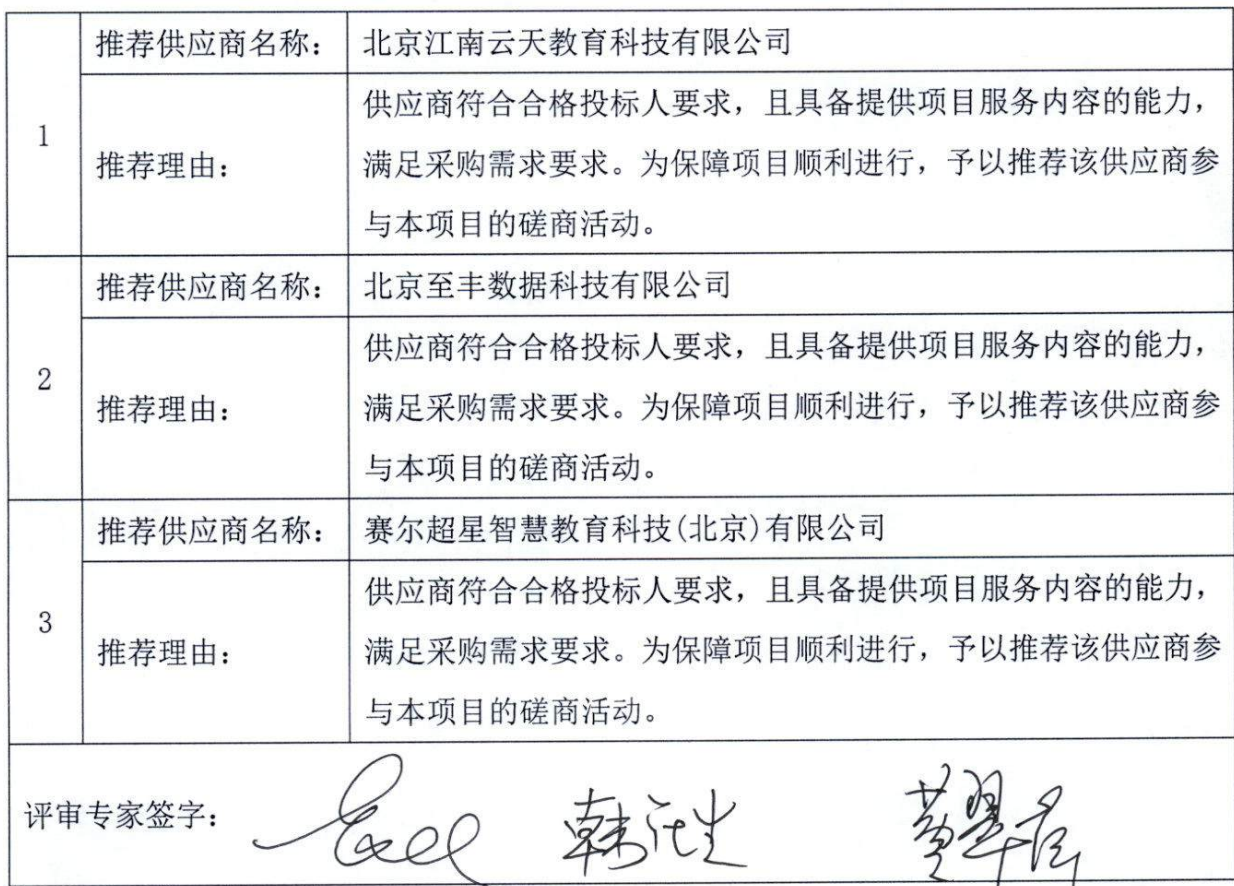 1
推荐供应商名称：
北京江南云天教育科技有限公司
推荐理由：
供应商符合合格投标人要求，且具备提供项目服务内容的能力，
满足采购需求要求。为保障项目顺利进行，予以推荐该供应商参
与本项目的磋商活动。
2
推荐供应商名称：
北京至丰数据科技有限公司
推荐理由：
供应商符合合格投标人要求，且具备提供项目服务内容的能力，
满足采购需求要求。为保障项目顺利进行，予以推荐该供应商参
与本项目的磋商活动。
3
推荐供应商名称：
赛尔超星智慧教育科技(北京)有限公司
推荐理由：
供应商符合合格投标人要求，且具备提供项目服务内容的能力，
满足采购需求要求。为保障项目顺利进行，予以推荐该供应商参
与本项目的磋商活动。
评审专家签字：